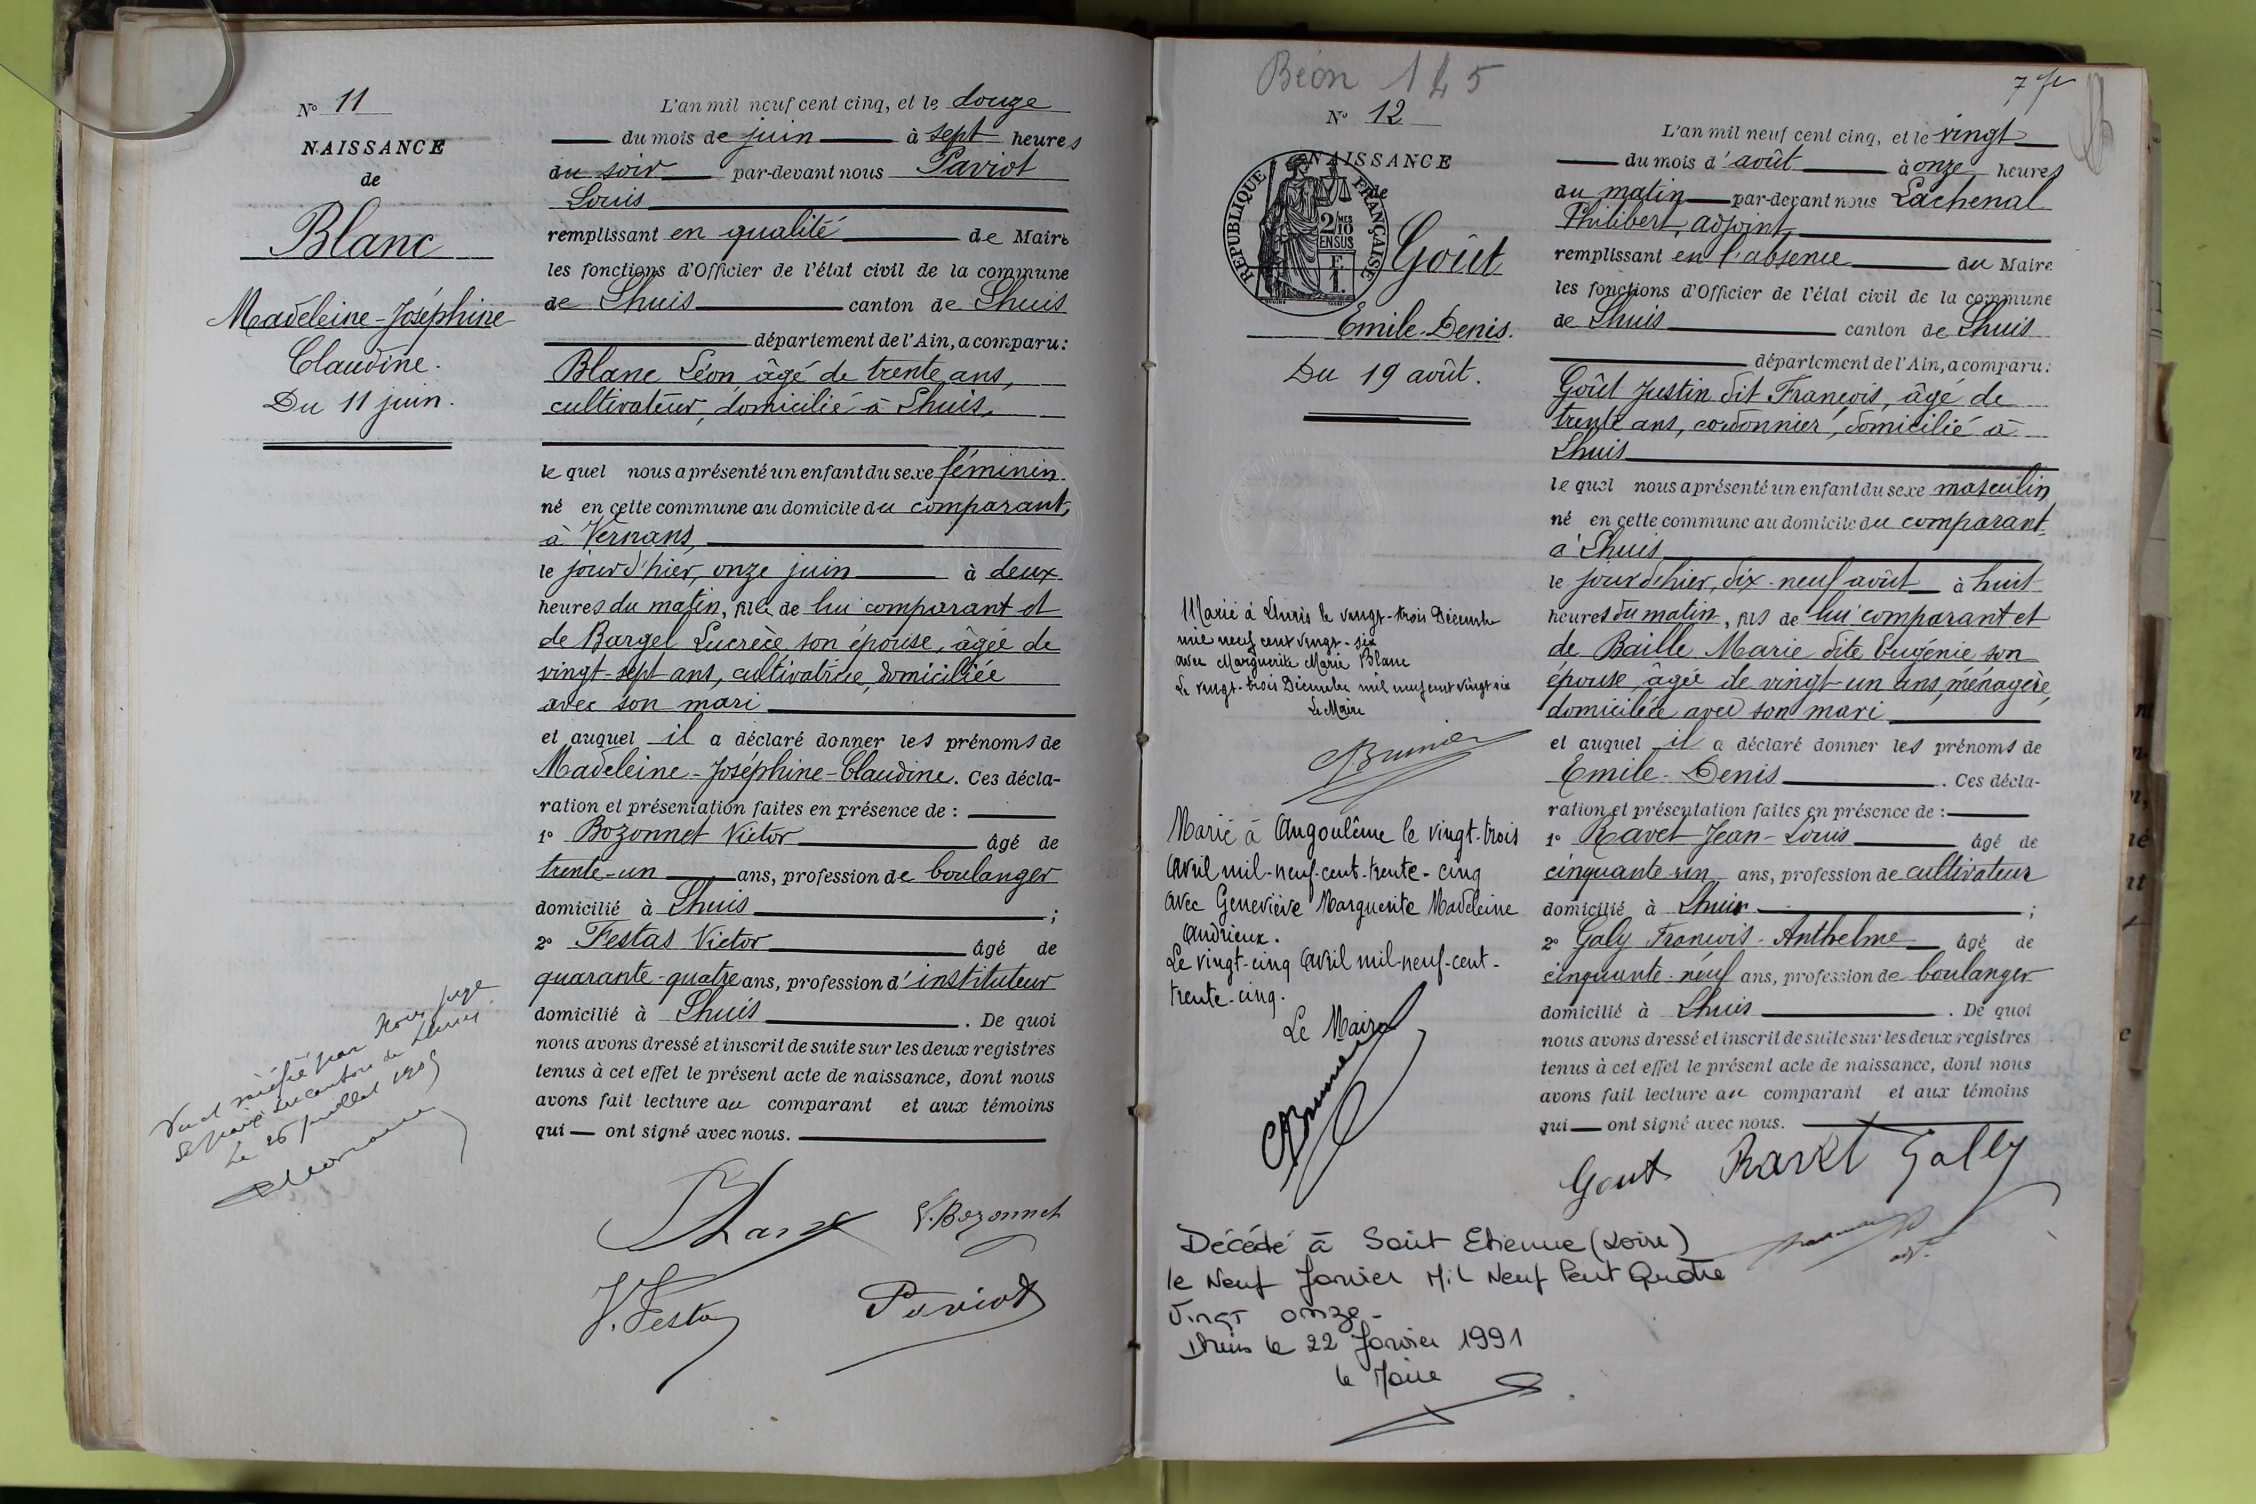 N° 11
NAISSANCE
de
Blanc
Madeleine-Joséphine
Claudine.
Du 11 juin.
Vu et vérifié par Nous juge
de paix du canton de Lhuis
Le 26 juillet 1905
L'an mil neuf cent cinq, et le douze
du mois de juin à sept heures
du soir par-devant nous Paviot
Louis
remplissant en qualité de Maire
les fonctions d'Officier de l'état civil de la commune
de Lhuis canton de Lhuis
département de l'Ain, a comparu:
Blanc Léon, âgé de trente ans,
cultivateur, domicilié à Lhuis,
le quel nous a présenté un enfant du sexe féminin
né en cette commune au domicile du comparant,
à Vernans,
le jour d'hier, onze juin à deux
heures du matin, fille de lui comparant et
de Bargel Lucrèce son épouse, âgée de
vingt-sept ans, cultivatrice, domiciliée
avec son mari
et auquel il a déclaré donner les prénoms de
Madeleine-Joséphine-Claudine. Ces décla-
ration et présentation faites en présence de :
1° Bozonnet Victor âgé de
trente-un ans, profession de boulanger
domicilié à Lhuis ;
2° Festas Victor âgé de
quarante-quatre ans, profession d'instituteur
domicilié à Lhuis . De quoi
nous avons dressé et inscrit de suite sur les deux registres
tenus à cet effet le présent acte de naissance, dont nous
avons fait lecture au comparant et aux témoins
qui — ont signé avec nous.
Blanc V. Bozonnet
V. Festas Paviot
Béon 145
7 f
N° 12
NAISSANCE
de
RÉPUBLIQUE FRANÇAISE
2/10
EN SUS
Goût
Emile-Denis.
Du 19 août.
Marié à Lhuis le vingt-trois Décembre
mil neuf cent vingt-six
avec Marguerite Marie Blanc
Le vingt-trois Décembre mil neuf cent vingt six
Le Maire
Brunier
Marié à Angoulême le vingt-trois
avril mil-neuf-cent-trente-cinq
avec Geneviève Marguerite Madeleine
Andrieux.
Le vingt-cinq avril mil-neuf-cent-
trente-cinq.
Le Maire
Brunier
Décédé à Saint Etienne (Loire)
le Neuf Janvier Mil Neuf Cent Quatre
Vingt onze-
Lhuis le 22 Janvier 1991
le Maire
L'an mil neuf cent cinq, et le vingt
du mois d'août à onze heures
du matin par-devant nous Lachenal
Philibert, adjoint,
remplissant en l'absence du Maire
les fonctions d'Officier de l'état civil de la commune
de Lhuis canton de Lhuis
département de l'Ain, a comparu:
Goût Justin dit François, âgé de
trente ans, cordonnier, domicilié à
Lhuis
le quel nous a présenté un enfant du sexe masculin
né en cette commune au domicile du comparant
à Lhuis
le jour d'hier, dix-neuf août à huit
heures du matin, fils de lui comparant et
de Baille Marie dite Eugénie son
épouse, âgée de vingt-un ans, ménagère,
domiciliée avec son mari
et auquel il a déclaré donner les prénoms de
Emile-Denis . Ces décla-
ration et présentation faites en présence de :
1° Ravet Jean-Louis âgé de
cinquante-un ans, profession de cultivateur
domicilié à Lhuis ;
2° Galy François-Anthelme âgé de
cinquante-neuf ans, profession de boulanger
domicilié à Lhuis . De quoi
nous avons dressé et inscrit de suite sur les deux registres
tenus à cet effet le présent acte de naissance, dont nous
avons fait lecture au comparant et aux témoins
qui — ont signé avec nous.
Gout Ravet Gally